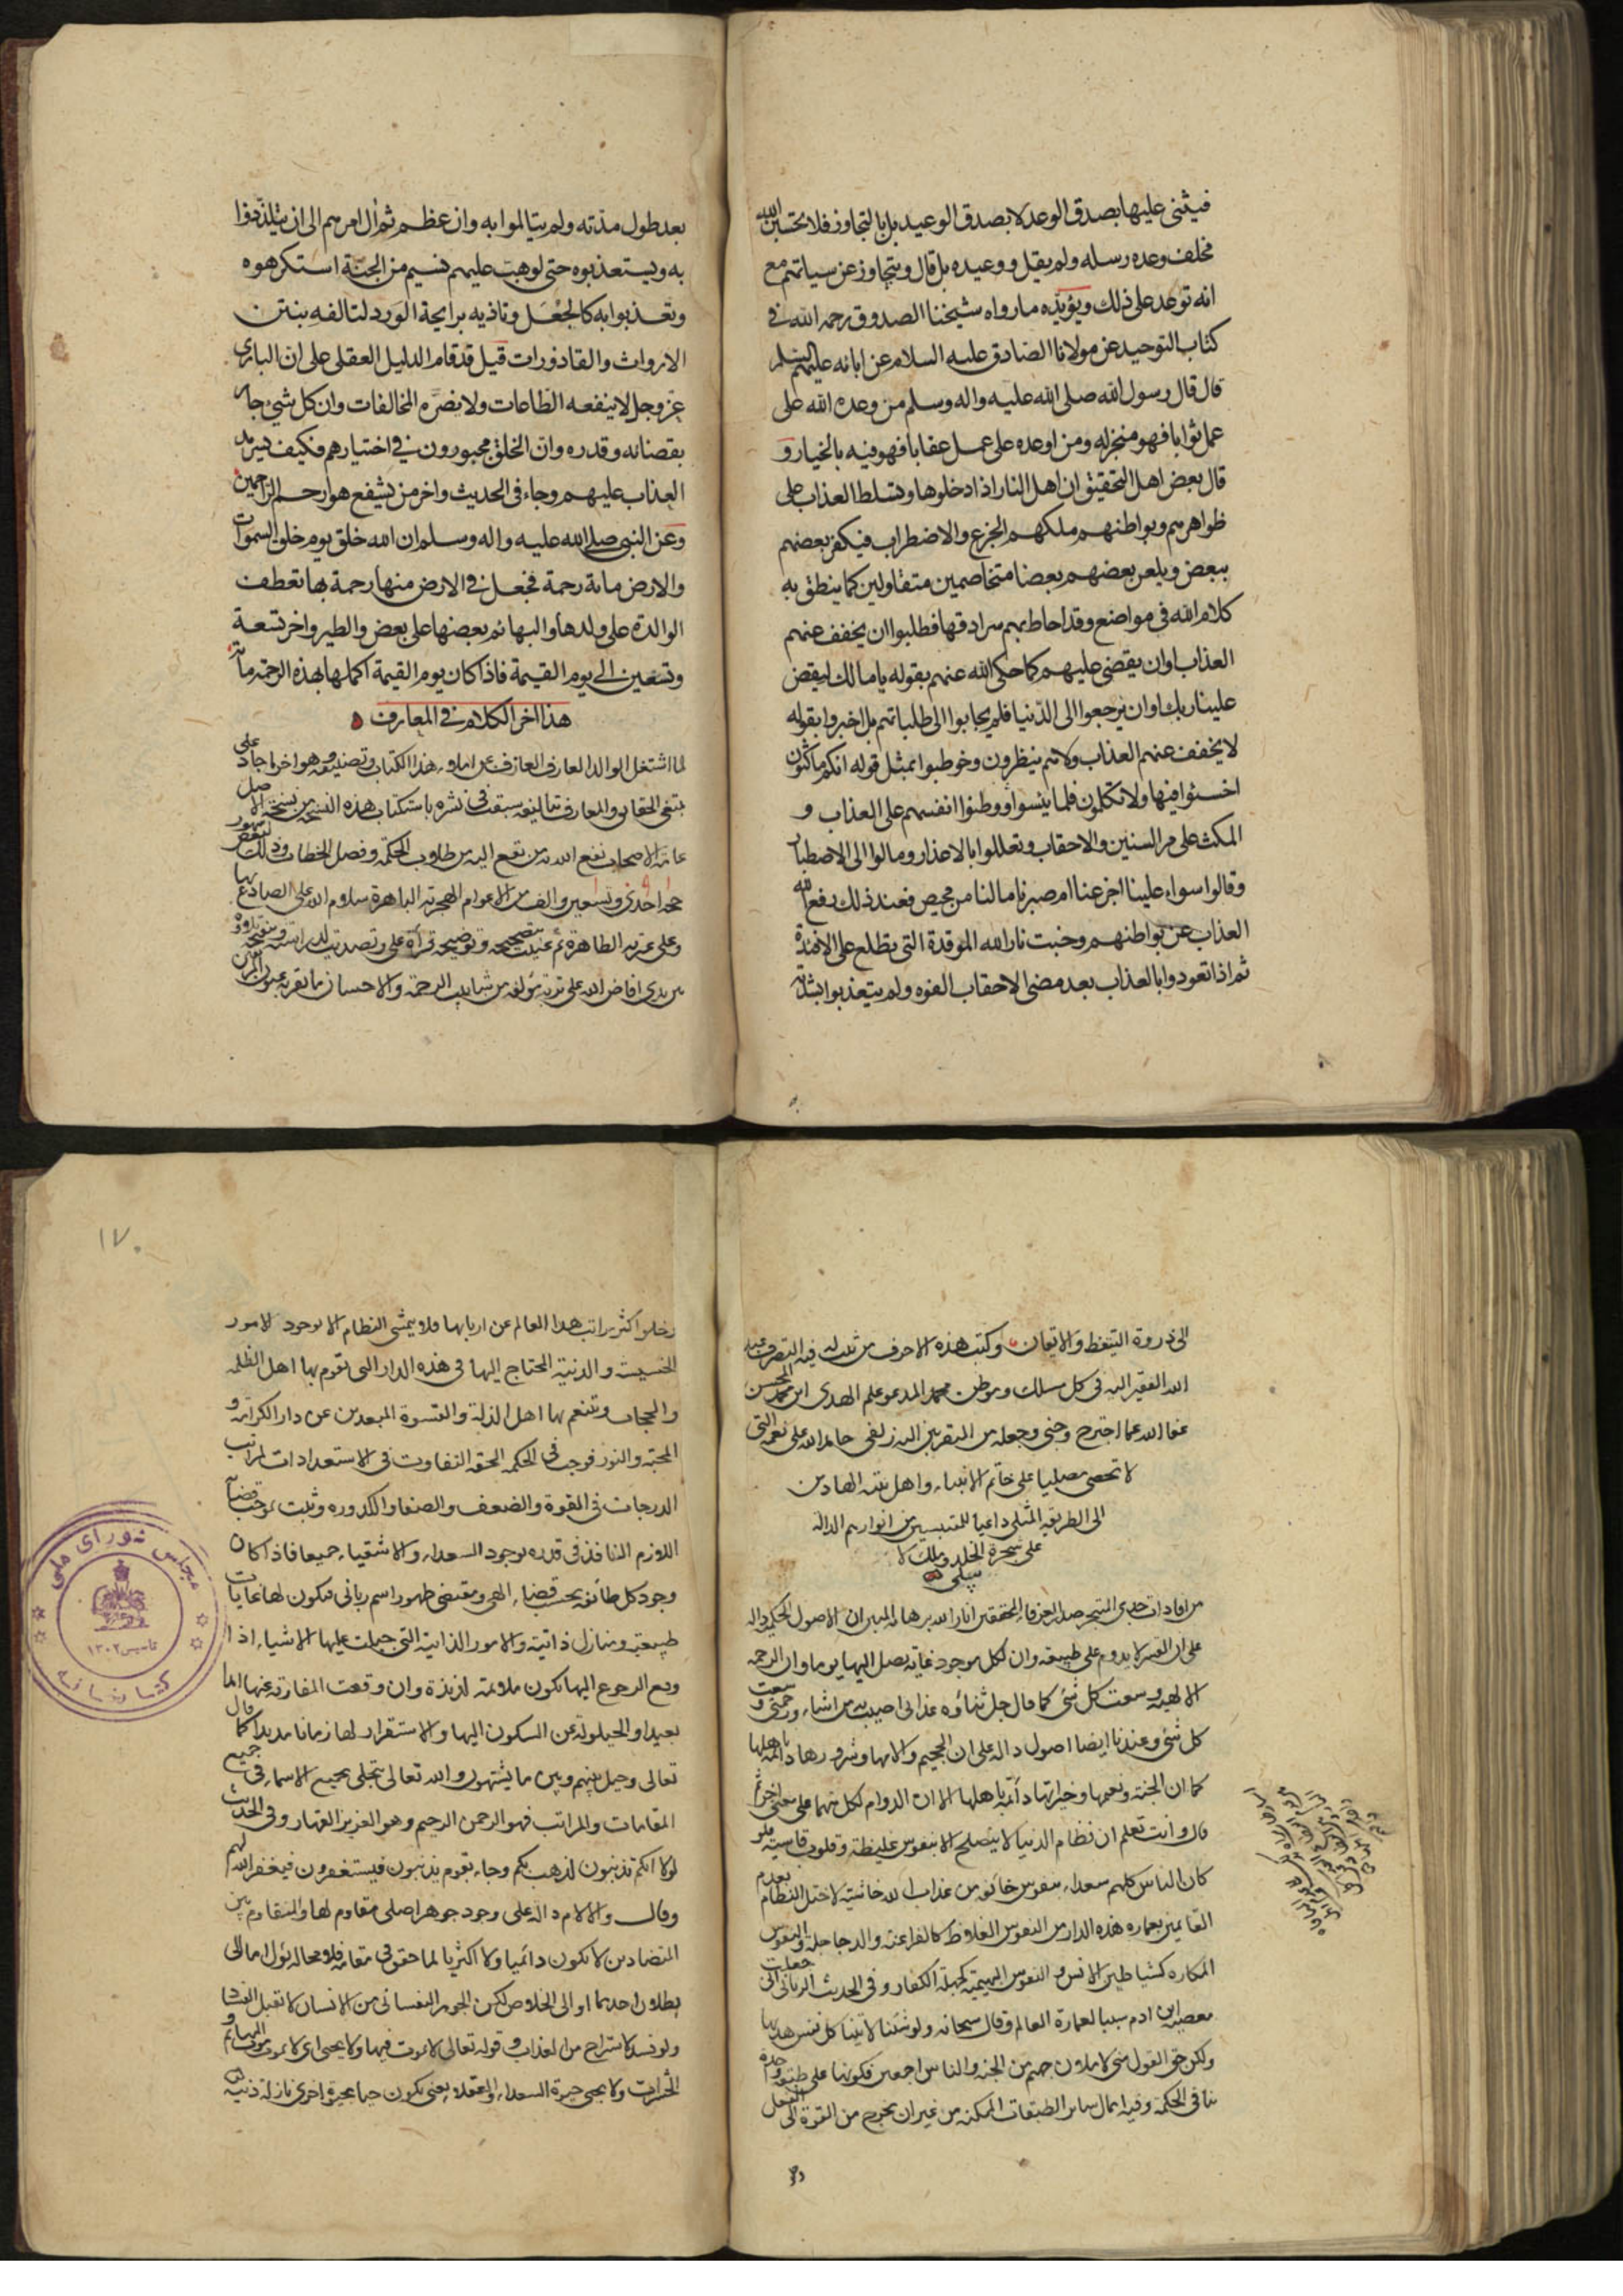 فيثنى عليها بصدق الوعد لا بصدق الوعيد بل بالتجاوز فلا تحسبن الله
مخلف وعده رسله ولم يقل ووعيده بل قال ويتجاوز عن سيئاتهم مع
انه توعد على ذلك ويؤيده ما رواه شيخنا الصدوق رحمه الله في
كتاب التوحيد عن مولانا الصادق عليه السلام عن ابائه عليهم السلم
قال قال رسول الله صلى الله عليه واله وسلم من وعده الله على
عمل ثوابا فهو منجز له ومن اوعده على عمل عقابا فهو فيه بالخيار و
قال بعض اهل التحقيق ان اهل النار اذا دخلوها وتسلط العذاب على
ظواهرهم وبواطنهم ملكهم الجزع والاضطراب فيكفر بعضهم
ببعض ويلعن بعضهم بعضا متخاصمين متقاولين كما ينطق به
كلام الله في مواضع وقد احاط بهم سرادقها فطلبوا ان يخفف عنهم
العذاب او ان يقضى عليهم كما حكى الله عنهم بقوله يا مالك ليقض
علينا ربك او ان يرجعوا الى الدنيا فلم يجابوا الى طلباتهم بل اخبروا بقوله
لا يخفف عنهم العذاب ولا هم ينظرون وخوطبوا بمثل قوله انكم ماكثون
اخسئوا فيها ولا تكلمون فلما يئسوا ووطنوا انفسهم على العذاب و
المكث على مر السنين والاحقاب وتعللوا بالاعذار ومالوا الى الاصطبار
وقالوا سواء علينا اجزعنا ام صبرنا ما لنا من محيص فعند ذلك رفع الله
العذاب عن بواطنهم وخبت نار الله الموقدة التي تطلع على الافئدة
ثم اذا تعودوا بالعذاب بعد مضى الاحقاب الفوه ولم يتعذبوا بشدته
بعد طول مدته ولم يتالموا به وان عظم ثم آل امرهم الى ان يتلذذوا
به ويستعذبوه حتى لو هبت عليهم نسيم من الجنة استكرهوه
وتعذبوا به كالجعل وتاذيه برايحة الورد لتالفه بنتن
الارواث والقاذورات قيل قد قام الدليل العقلى على ان البارى
عز وجل لا ينفعه الطاعات ولا يضره المخالفات وان كل شيء جار
بقضائه وقدره وان الخلق مجبورون في اختيارهم فكيف يسرمد
العذاب عليهم وجاء في الحديث واخر من يشفع هو ارحم الراحمين
وعن النبى صلى الله عليه واله وسلم ان الله خلق يوم خلق السموات
والارض مائة رحمة فجعل في الارض منها رحمة بها تعطف
الوالدة على ولدها والبهائم بعضها على بعض والطير واخر تسعة
وتسعين الى يوم القيمة فاذا كان يوم القيمة اكملها بهذه الرحمة مائة
هذا اخر الكلام في المعارف
لما اشتغل الوالد العارف العازف عن املاء هذا الكتاب وتصنيفه وهو اخر ما جاد على
مبتغى الحقايق والمعارف بتاليفه سبقت في نشره باستكتاب هذه النسخة من نسخة الاصل
عامة الاصحاب نفع الله به من تقع اليه من طلاب الحكمة وفصل الخطاب وذلك لبعض شهور
حجة احدى وتسعين والف من الاعوام الهجرية الباهرة سلام الله على الصادع بها
وعلى عترته الطاهرة ثم عنيت بتصحيحه وتوضيحه قرأة على وتصديت لدراسته
بين يدى افاض الله على تربة مؤلفه من شابيب الرحمة والاحسان ما تقر به عيون
الى ذروة التيقظ والاتقان وكتب هذه الاحرف من ثبت له فيه التصرف عبد
الله الفقير اليه في كل مسلك وموطن محمد المدعو علم الهدى ابن محمد المحسن
عفا الله عما اجترح وجنى وجعله من المقربين اليه زلفى حامدا لله على نعمه التي
لا تحصى مصليا على خاتم الانبياء واهل بيته الهادين
الى الطريقة المثلى داعيا للمقتبسين من انوارهم الدالة
على شجرة الخلد وملك لا
يبلى
من افادات جدى المتبحر صدر العرفاء المحققين انار الله برهانه المبين ان الاصول الحكمية دالة
على ان القسر لا يدوم على طبيعة وان لكل موجود غاية يصل اليها يوما وان الرحمة
الالهية وسعت كل شئ كما قال جل ثناؤه عذابى اصيب به من اشاء ورحمتى وسعت
كل شئ وعندنا ايضا اصول دالة على ان الجحيم والامها وشرورها دائمة باهلها
كما ان الجنة ونعيمها وخيراتها دائمة باهلها الا ان الدوام لكل منهما على معنى اخر ثم
قال وانت تعلم ان نظام الدنيا لا ينصلح الا بنفوس غليظة وقلوب قاسية فلو
كان الناس كلهم سعداء بنفوس خائفة من عذاب الله خاشية لاختل النظام بعدم
القائمين بعمارة هذه الدار من النفوس الغلاظ كالفراعنة والدجاجلة والنفوس
المكاره كشياطين الانس والنفوس البهيمية كجهلة الكفار وفي الحديث الربانى انى جعلت
معصية ابن ادم سببا لعمارة العالم وقال سبحانه ولو شئنا لاتينا كل نفس هديها
ولكن حق القول منى لاملأن جهنم من الجنة والناس اجمعين فكونها على طبقة واحدة
ينافى الحكمة وفيه اهمال سائر الطبقات الممكنة من غير ان يخرج من القوة الى الفعل
١٧٠
وخلو اكثر مراتب هذا العالم عن اربابها فلا يتمشى النظام الا بوجود الامور
الخسيسة والدنية المحتاج اليها في هذه الدار التى تقوم بها اهل الظلمة
والحجاب وتتنعم بها اهل الذلة والقسوة المبعدين عن دار الكرامة و
المحبة والنور فوجب في الحكمة الحقة التفاوت في الاستعدادات لمراتب
الدرجات في القوة والضعف والصفاء والكدورة وثبت بموجب قضائه
اللازم النافذ في قدره بوجود السعداء والاشقياء جميعا فاذا كان
وجود كل طائفة بحسب قضاء الهى ومقتضى ظهور اسم ربانى فيكون لها غايات
طبيعية ومنازل ذاتية والامور الذاتية التى جبلت عليها الاشياء اذا
وقع الرجوع اليها تكون ملائمة لذيذة وان وقعت المفارقة عنها امدا
بعيدا والحيلولة عن السكون اليها والاستقرار لها زمانا مديدا كما قال
تعالى وحيل بينهم وبين ما يشتهون والله تعالى يتجلى بجميع الاسماء في جميع
المقامات والمراتب فهو الرحمن الرحيم وهو العزيز القهار وفي الحديث
لولا انكم تذنبون لذهب بكم وجاء بقوم يذنبون فيستغفرون فيغفر الله لهم
وقال والالام دالة على وجود جوهر اصلى مقاوم لها والتقاوم بين
المتضادين لا يكون دائميا ولا اكثريا لما حقق في مقامه فلا محالة يؤل اما الى
بطلان احدهما او الى الخلاص لكن الجوهر النفسانى من الانسان لا تقبل الفساد
ولو فسد لاستراح من العذاب وقوله تعالى لا يموت فيها ولا يحيى اى لا يموت موت البهائم و
الحشرات ولا يحيى حيوة السعداء والعقلاء يعنى يكون حيا بحيوة اخرى نازلة دنية
مجلس شوراى ملى
تاسيس ١٣٠٢
كتابخانه